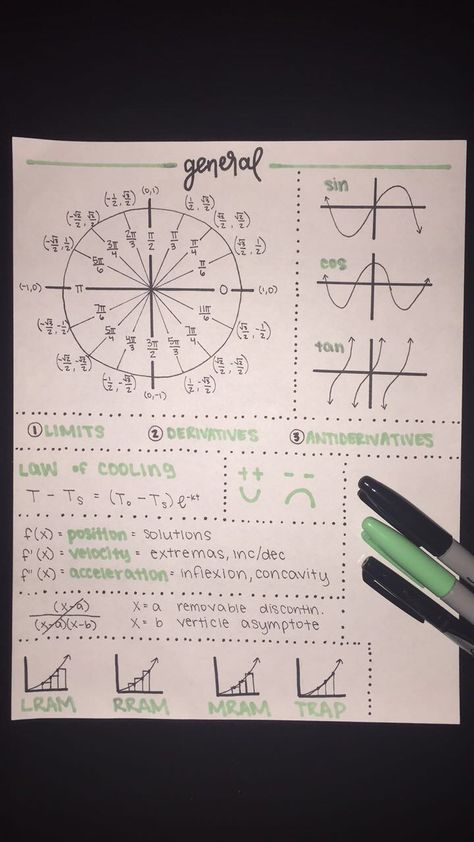 general
(0,1)
(-1/2, √3/2) (1/2, √3/2)
(-√2/2, √2/2) (√2/2, √2/2)
(-√3/2, 1/2) (√3/2, 1/2)
2π/3 π/2 π/3
3π/4 π/4
5π/6 π/6
(-1,0) π 0 (1,0)
7π/6 11π/6
5π/4 7π/4
4π/3 3π/2 5π/3
(-√3/2, -1/2) (√3/2, -1/2)
(-√2/2, -√2/2) (√2/2, -√2/2)
(-1/2, -√3/2) (1/2, -√3/2)
(0,-1)
sin
cos
tan
① LIMITS ② DERIVATIVES ③ ANTIDERIVATIVES
LAW OF COOLING
T - Ts = (To - Ts) e^-kt
++ --
f(x) = position = solutions
f'(x) = velocity = extremas, inc/dec
f"(x) = acceleration = inflexion, concavity
(x-a) x = a removable discontin.
(x-a)(x-b) x = b verticle asymptote
LRAM RRAM MRAM TRAP